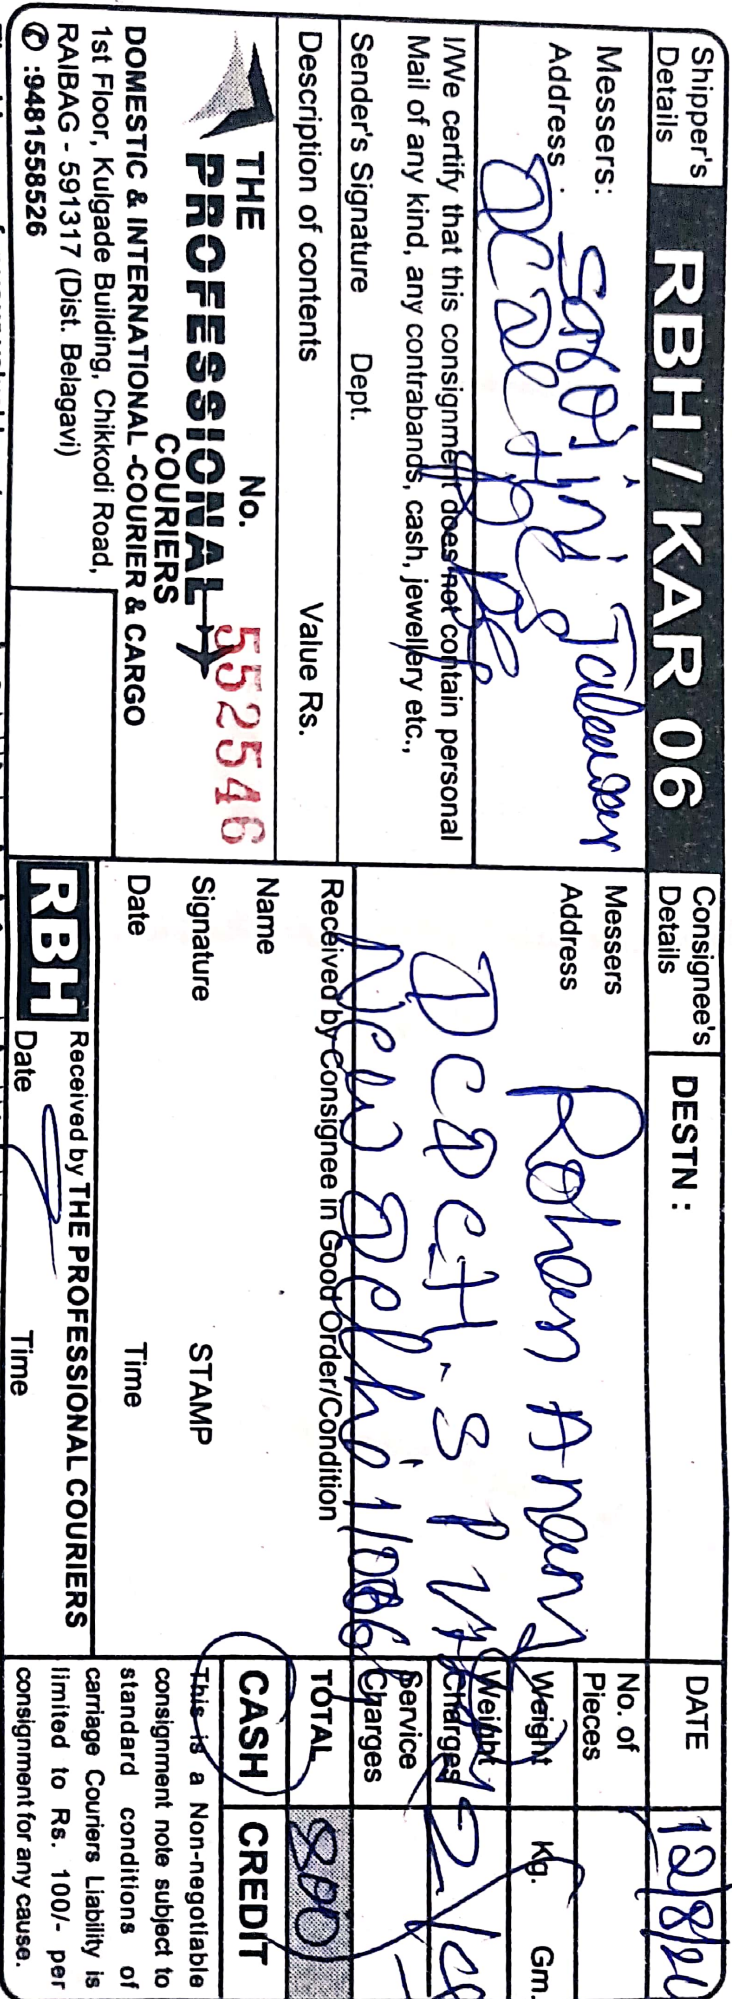 Shipper's
Details
RBH / KAR 06
Messers: Sarojini Talawar
Address :
I/We certify that this consignment does not contain personal
Mail of any kind, any contrabands, cash, jewellery etc.,
Sender's Signature Dept.
Description of contents Value Rs.
THE
PROFESSIONAL
COURIERS
No. 552546
DOMESTIC & INTERNATIONAL -COURIER & CARGO
1st Floor, Kulgade Building, Chikkodi Road,
RAIBAG - 591317 (Dist. Belagavi)
✆ :9481558526
Consignee's
Details
DESTN :
Messers Rohan Anam
Address
New Delhi 1
Received by Consignee in Good Order/Condition
Name
Signature STAMP
Date Time
RBH
Received by THE PROFESSIONAL COURIERS
Date Time
DATE 12/8/20
No. of
Pieces
Weight Kg. Gm.
Weight
Charges
Service
Charges
TOTAL 800
CASH CREDIT
This is a Non-negotiable
consignment note subject to
standard conditions of
carriage Couriers Liability is
limited to Rs. 100/- per
consignment for any cause.